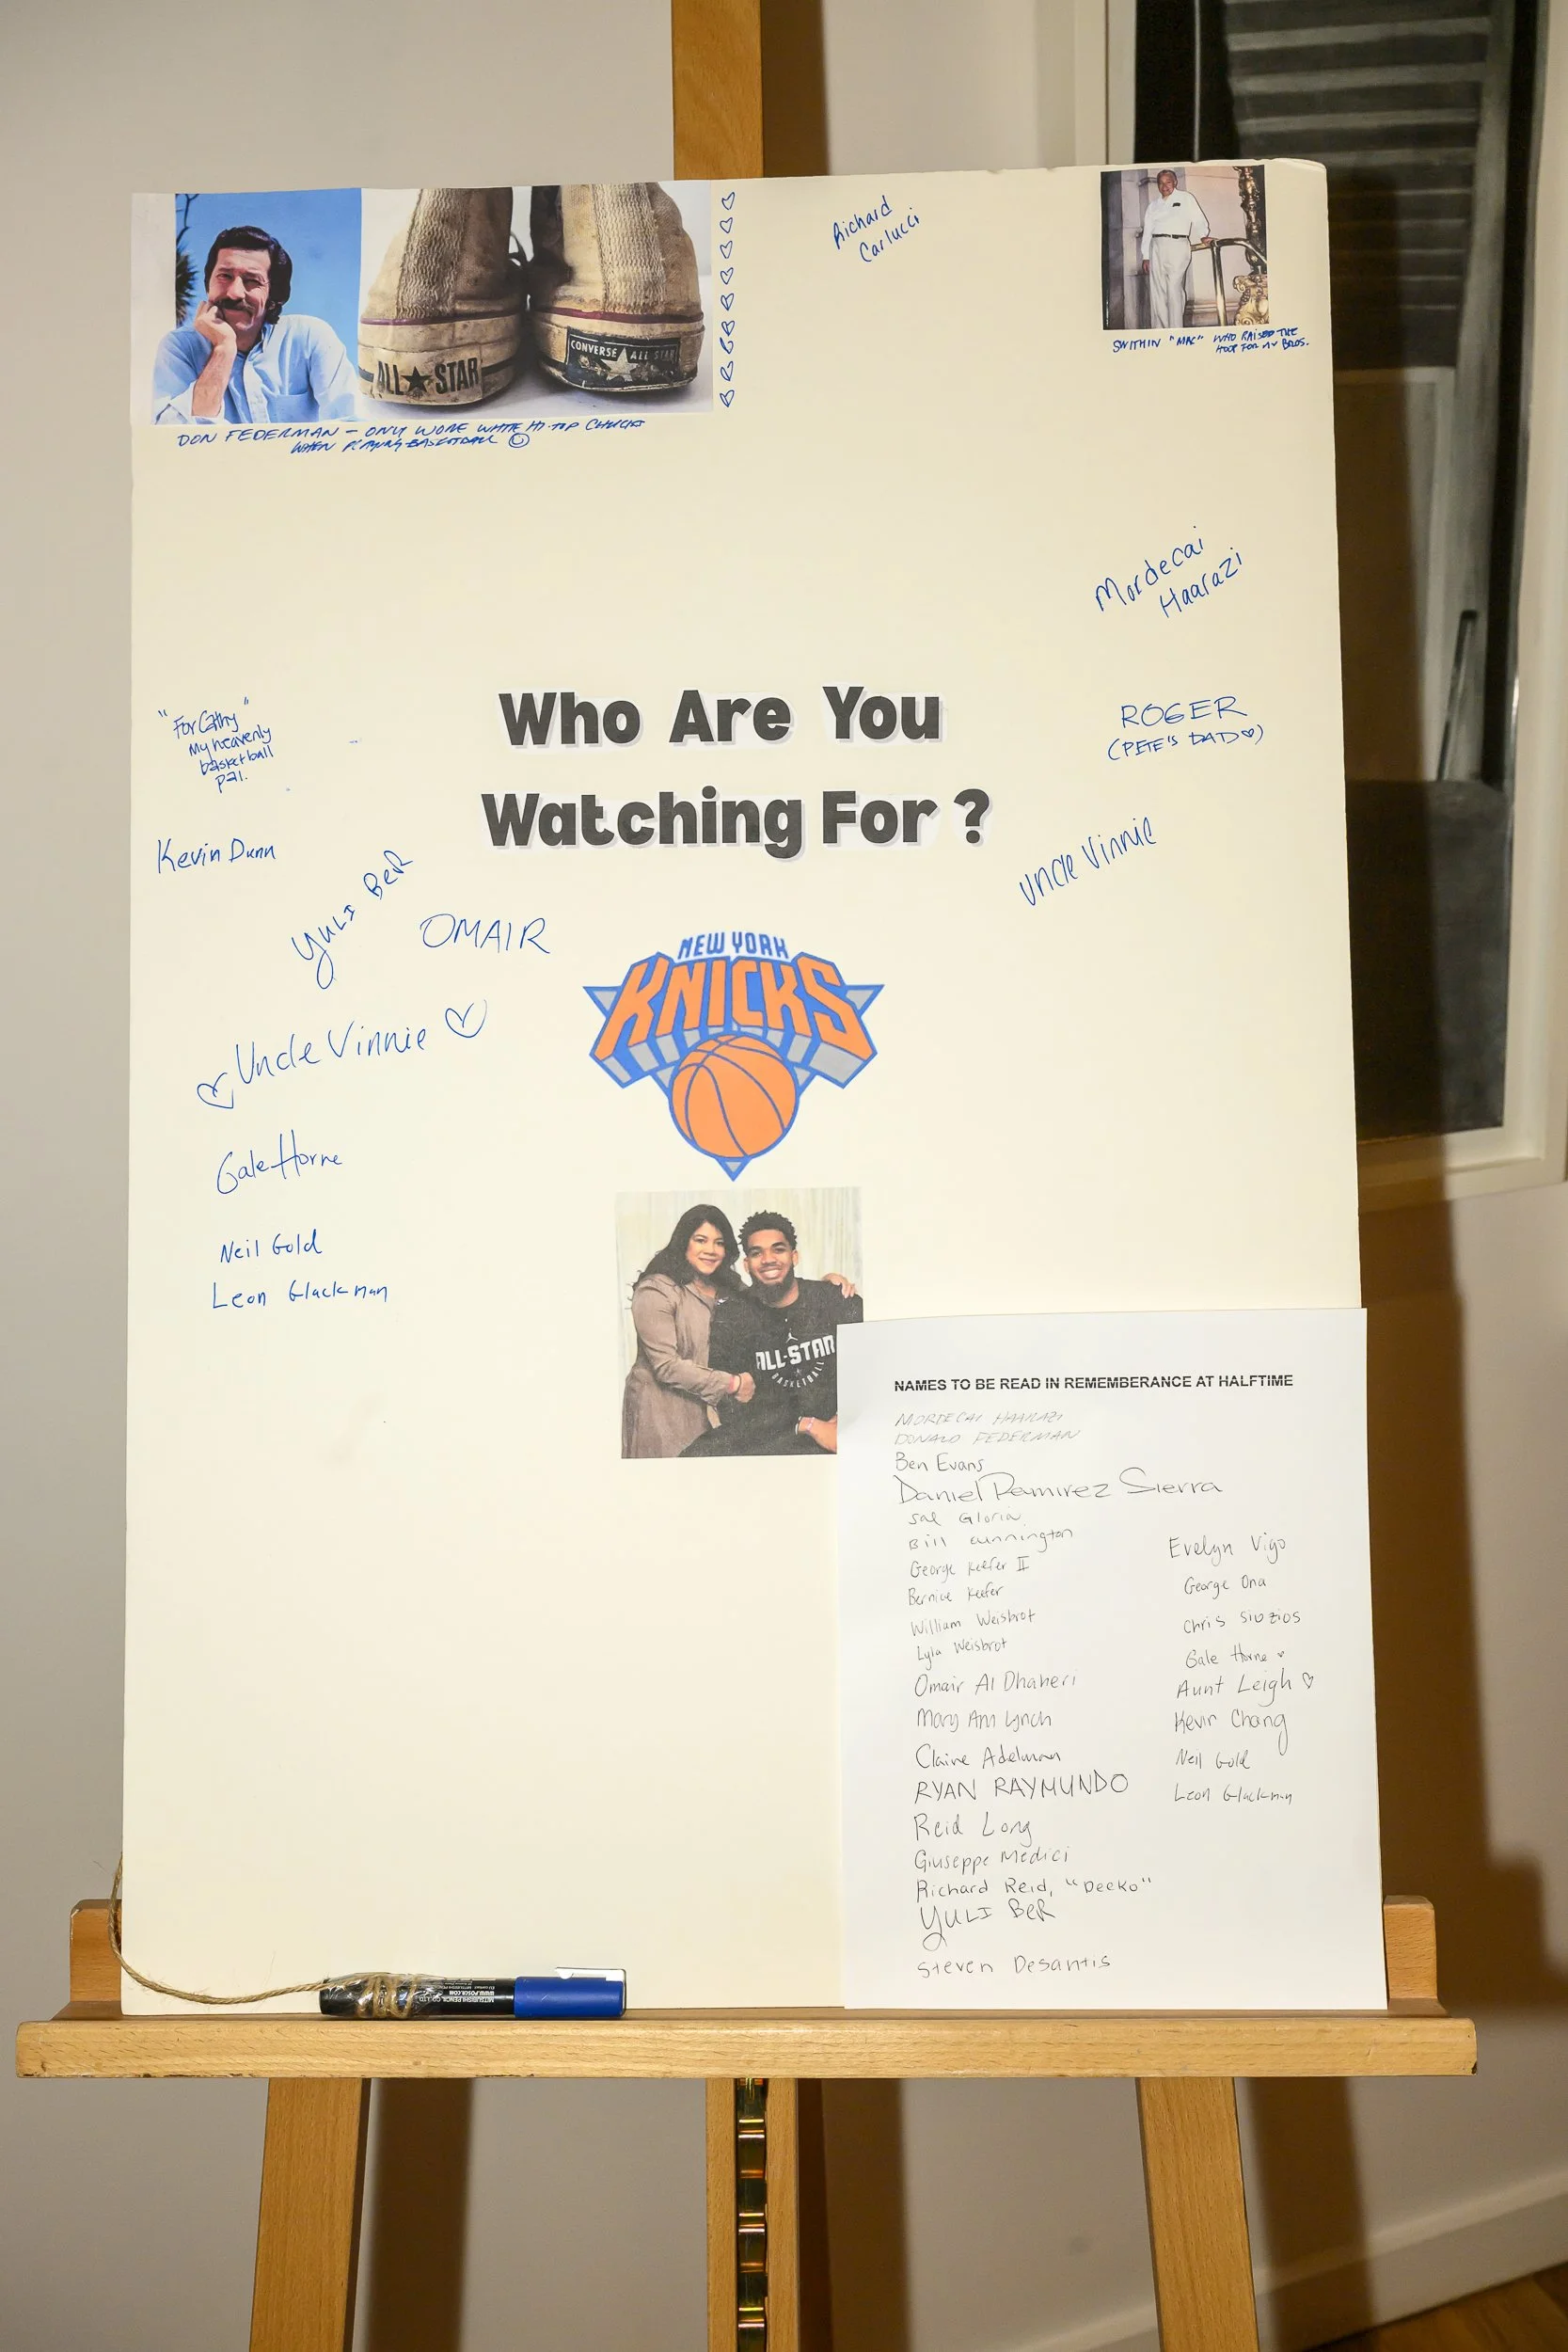 ALL★STAR
CONVERSE ★ ALL STAR
DON FEDERMAN – ONLY WORE WHITE HI-TOP CHUCKS
WHEN PLAYING BASKETBALL ☺
Richard
Carlucci
SWITHIN "MAC" WHO RAISED THE
HOOP FOR MY BROS.
Mordecai
Haarazi
Who Are You
Watching For ?
"For Cathy"
My heavenly
basketball
pal.
ROGER
(PETE'S DAD ♡)
Kevin Dunn
Uncle Vinnie
YULI BER
OMAIR
NEW YORK
KNICKS
♡ Uncle Vinnie ♡
Gale Horne
Neil Gold
Leon Glackman
ALL-STAR
BASKETBALL
NAMES TO BE READ IN REMEMBERANCE AT HALFTIME
MORDECAI HAARAZI
DONALD FEDERMAN
Ben Evans
Daniel Ramirez Sierra
Sal Gloria
Bill Cunnington
George Keefer II
Bernice Keefer
William Weisbrot
Lyla Weisbrot
Omair Al Dhaheri
Mary Ann Lynch
Claire Adelman
RYAN RAYMUNDO
Reid Long
Giuseppe Medici
Richard Reid, "Deeko"
YULI BER
Steven Desantis
Evelyn Vigo
George Ona
Chris Siozios
Gale Horne ♡
Aunt Leigh ♡
Kevin Chang
Neil Gold
Leon Glackman
MITSUBISHI PENCIL CO.,LTD.
WWW.POSCA.COM